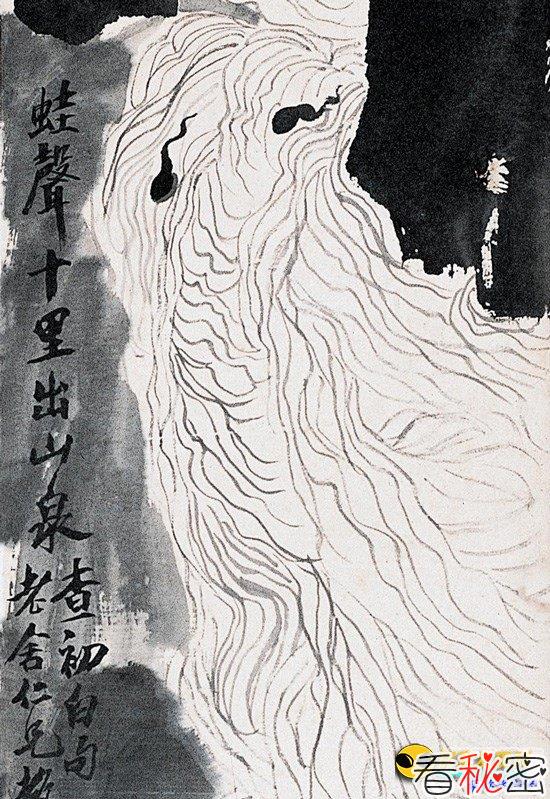 蛙聲十里出山泉
查初白句
老舍仁兄
看秘密